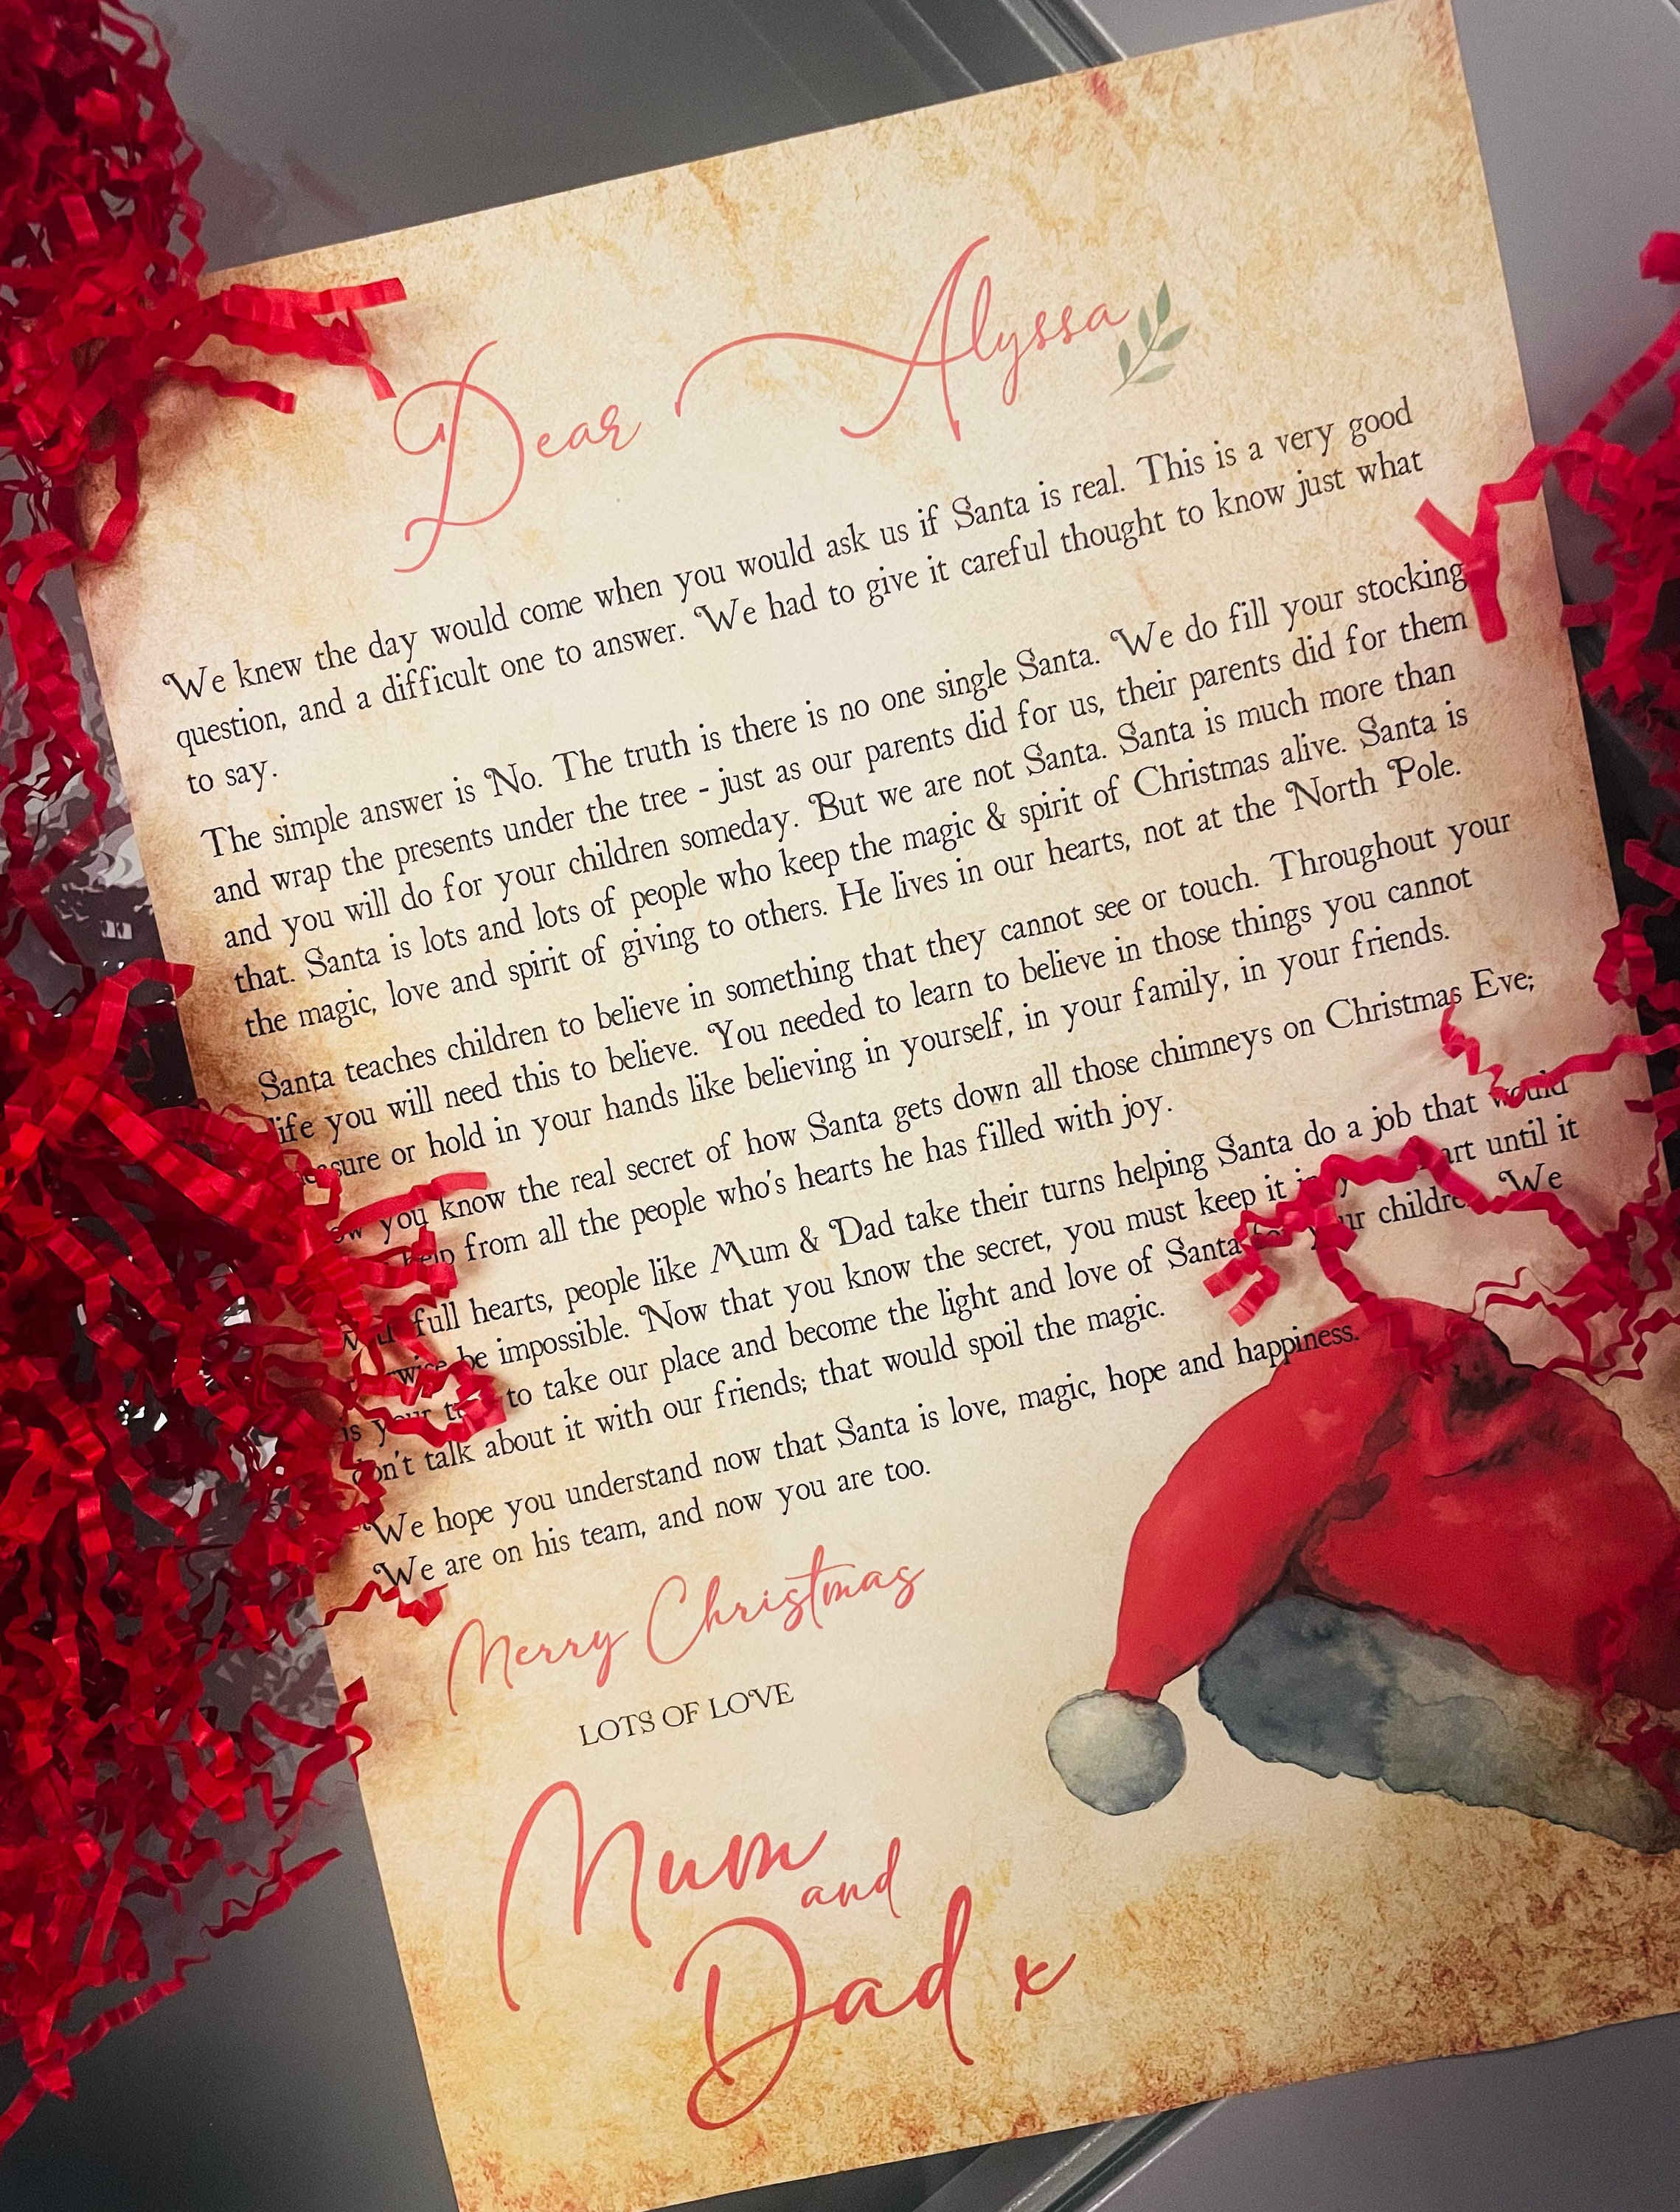 Dear Alyssa
We knew the day would come when you would ask us if Santa is real. This is a very good
question, and a difficult one to answer. We had to give it careful thought to know just what
to say.
The simple answer is No. The truth is there is no one single Santa. We do fill your stocking
and wrap the presents under the tree - just as our parents did for us, their parents did for them
and you will do for your children someday. But we are not Santa. Santa is much more than
that. Santa is lots and lots of people who keep the magic & spirit of Christmas alive. Santa is
the magic, love and spirit of giving to others. He lives in our hearts, not at the North Pole.
Santa teaches children to believe in something that they cannot see or touch. Throughout your
life you will need this to believe. You needed to learn to believe in those things you cannot
or hold in your hands like believing in yourself, in your family, in your friends.
you know the real secret of how Santa gets down all those chimneys on Christmas Eve;
help from all the people who's hearts he has filled with joy.
full hearts, people like Mum & Dad take their turns helping Santa do a job that would
be impossible. Now that you know the secret, you must keep it in until it
is to take our place and become the light and love of Santa We
don't talk about it with our friends; that would spoil the magic.
We hope you understand now that Santa is love, magic, hope and happiness.
We are on his team, and now you are too.
Merry Christmas
LOTS OF LOVE
Mum
and
Dad x